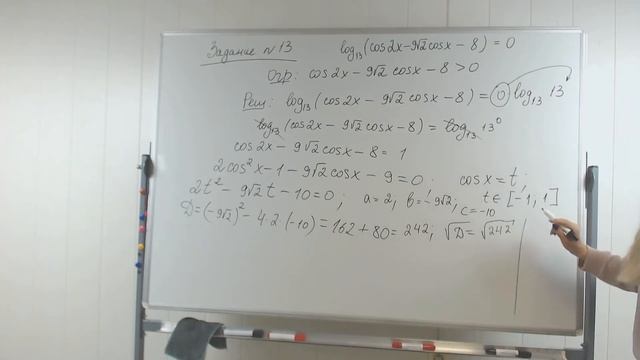 Задание №13 log₁₃(cos2x-9√2cosx-8)=0
Огр: cos2x-9√2 cosx-8>0
Реш: log₁₃(cos2x-9√2 cosx-8)=0 log₁₃ 13
log₁₃(cos2x-9√2 cosx-8)=log₁₃ 13⁰
cos2x-9√2 cosx-8=1
2cos²x-1-9√2cosx-9=0 cosx=t;
2t²-9√2 t-10=0; a=2, b=-9√2, c=-10 t∈[-1,1]
D=(-9√2)²-4·2·(-10)=162+80=242; √D=√242